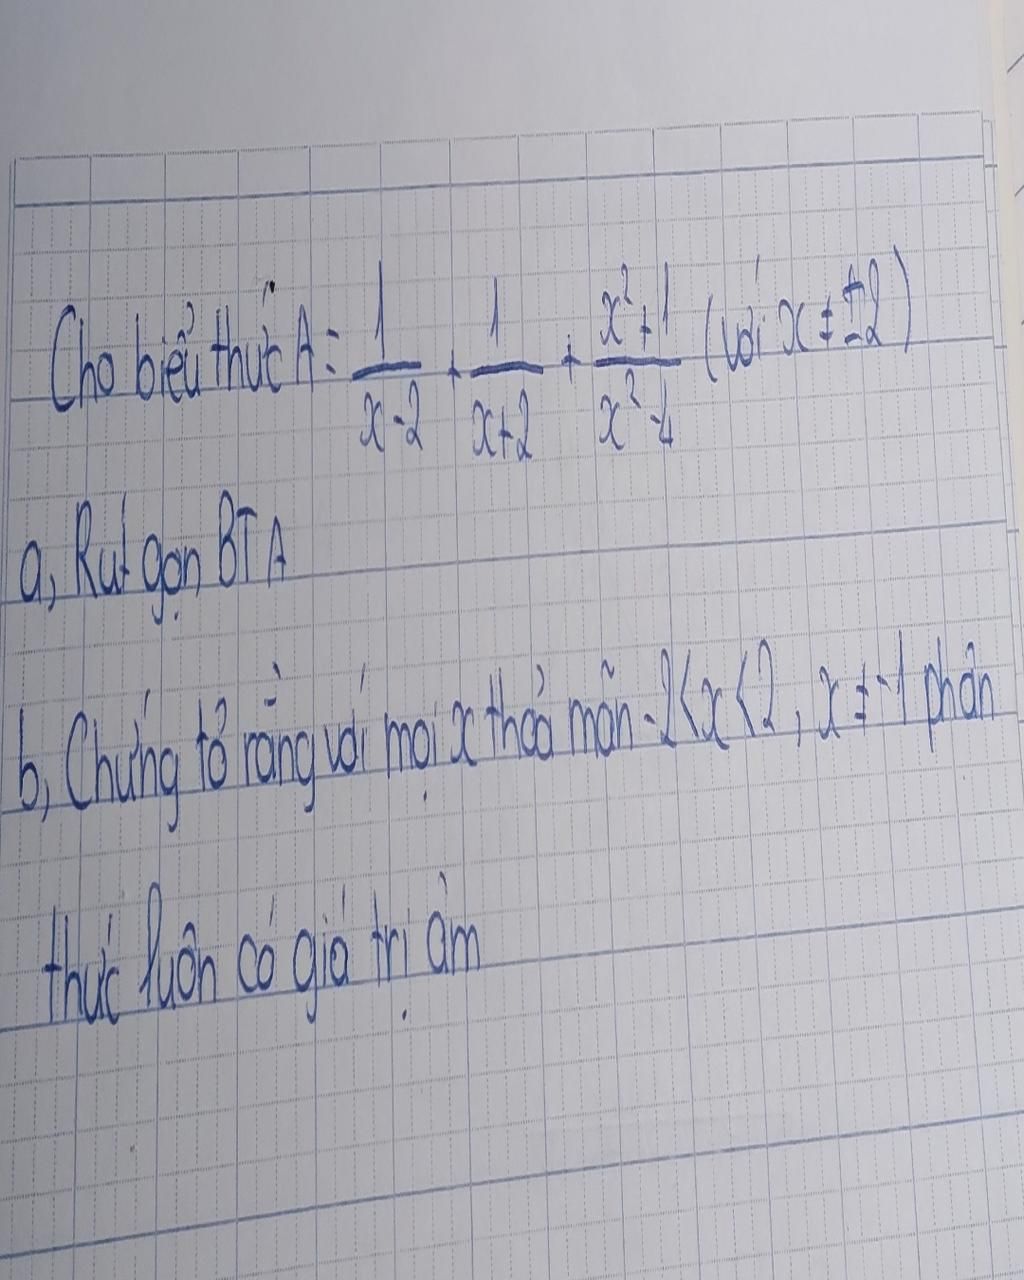 Cho biểu thức A = 1/(x-2) + 1/(x+2) + (x²+1)/(x²-4) (với x ≠ ±2)
a, Rút gọn BT A
b, Chứng tỏ rằng với mọi x thoả mãn -2<x<2, x ≠ -1 phân
thức luôn có giá trị âm